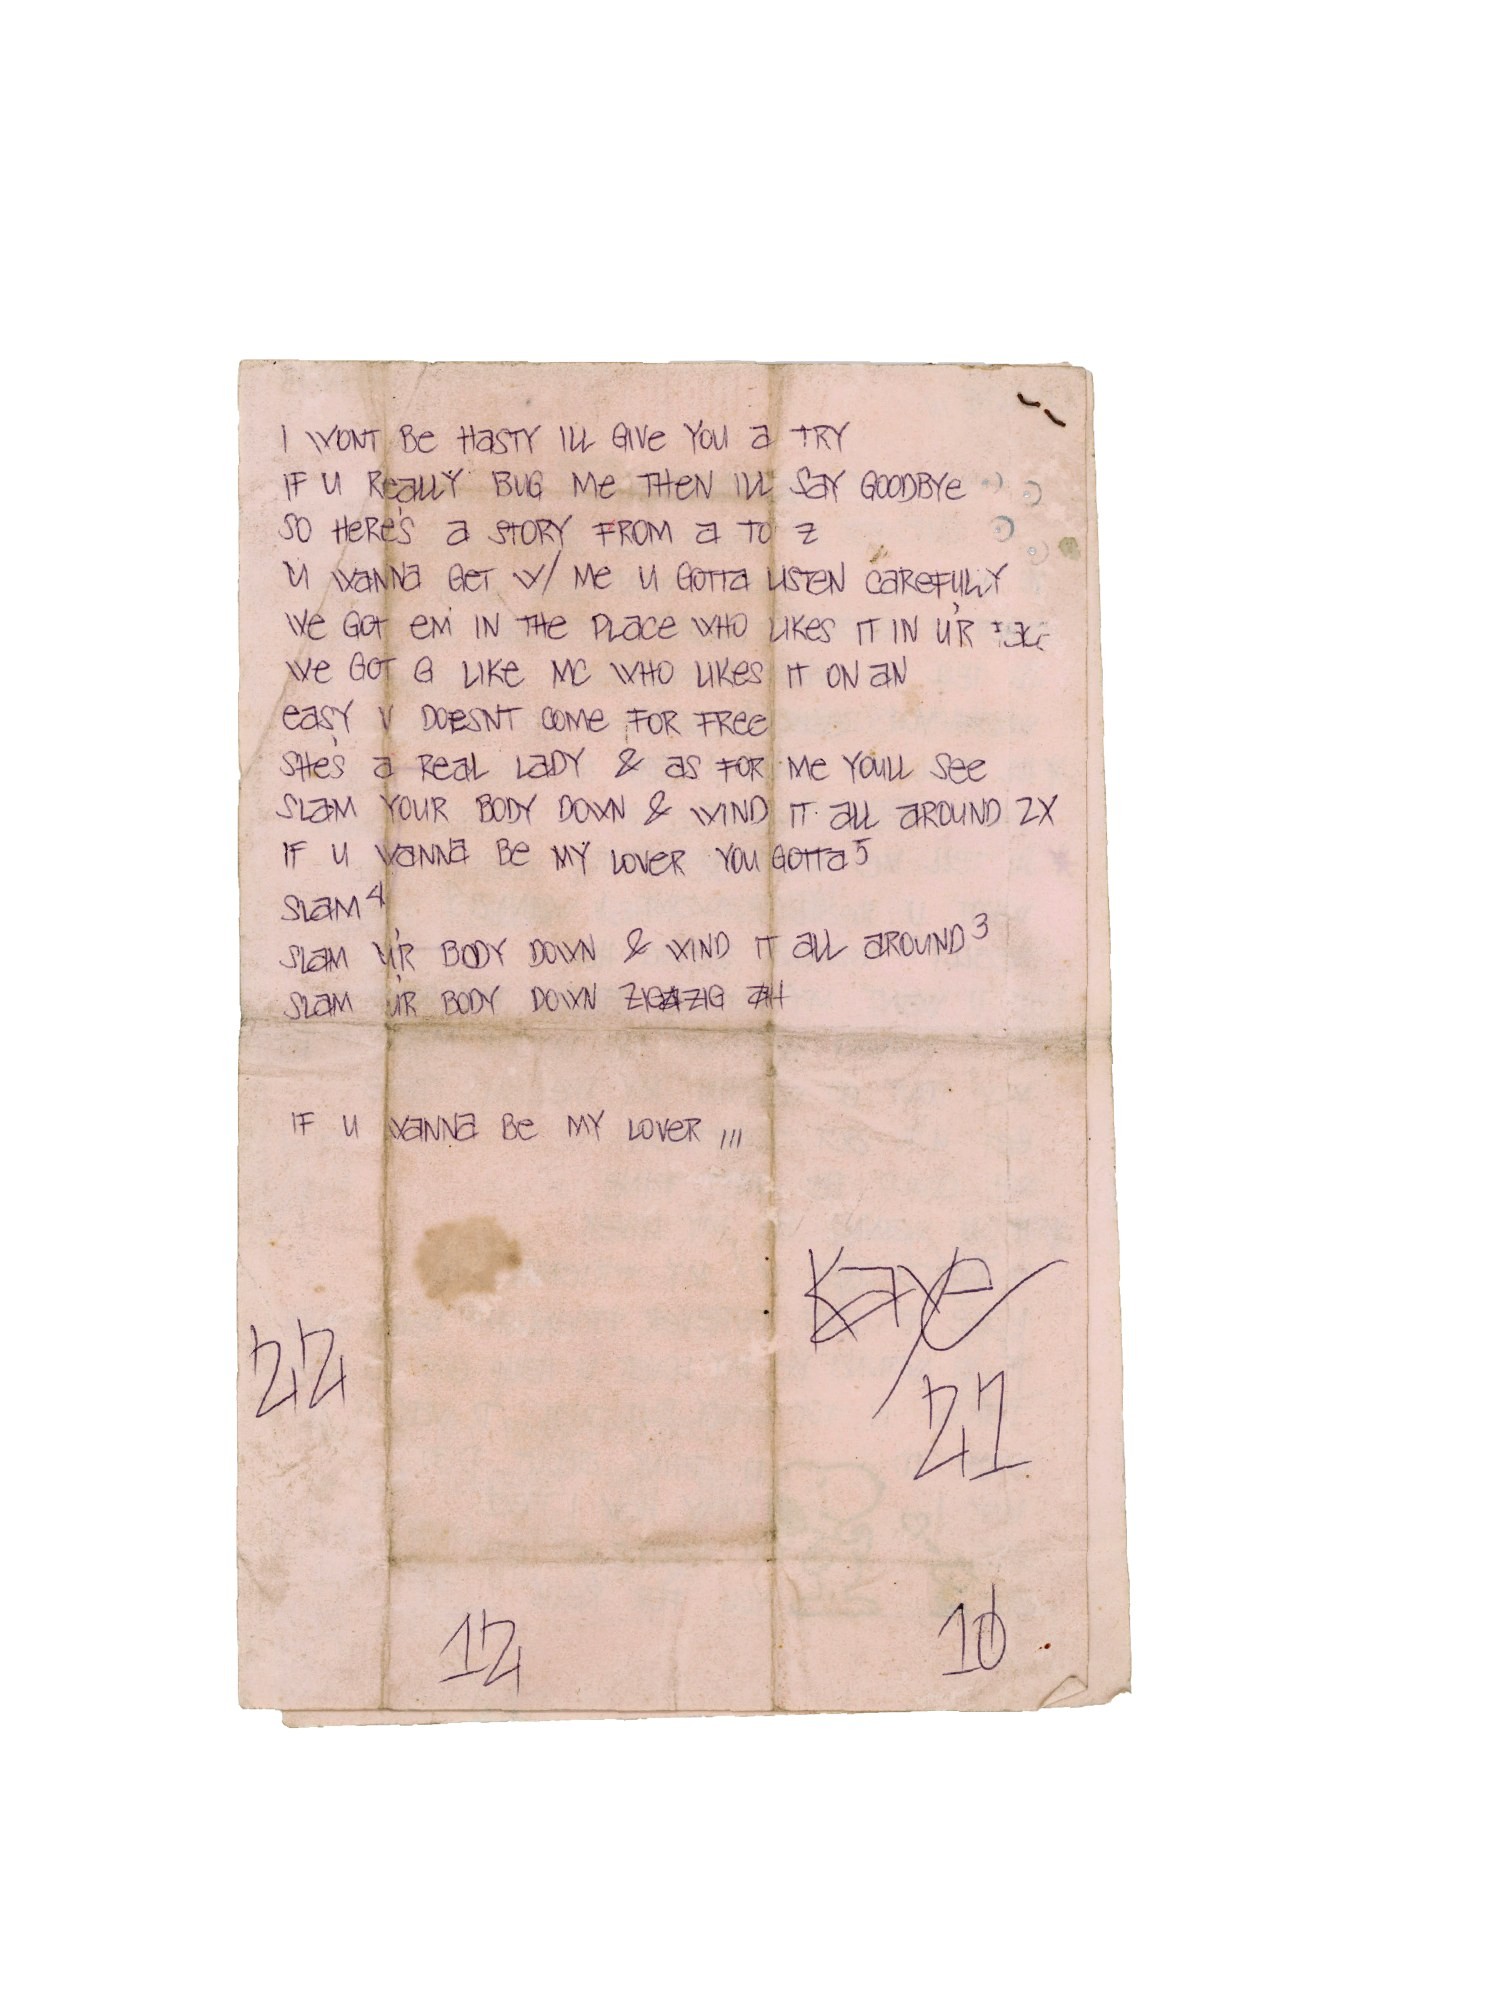 I WONT Be HaSTY ILL GIVe YOU a TRY
IF U ReaLLY BUG Me THeN ILL SaY GOODBYe
SO HeRe'S a STORY FROM a TO Z
U WaNNa GeT W/ Me U GOTTa LISTeN CaReFULLY
We GOT eM IN THe PLaCe WHO LIKES IT IN U'R FaCe
We GOT G LIKe MC WHO LIKeS IT ON aN
eaSY V DOESNT COMe FOR FRee
SHe'S a ReaL LaDY & aS FOR Me YOULL See
SLaM YOUR BODY DOWN & WIND IT aLL aROUND 2X
IF U WaNNa Be MY LOVeR YOU GOTTa 5
SLaM 4
SLaM U'R BODY DOWN & WIND IT aLL aROUND 3
SLaM U'R BODY DOWN ZIGaZIG aH
IF U WaNNa Be MY LOVeR ,,,
Kaye
22
21
12
10